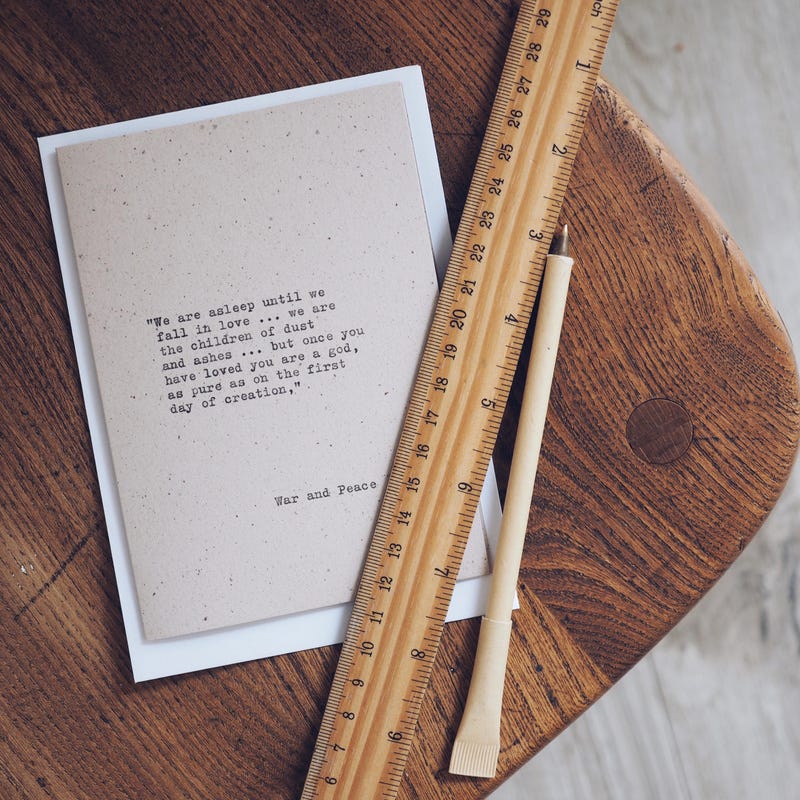 "We are asleep until we
fall in love ... we are
the children of dust
and ashes ... but once you
have loved you are a god,
as pure as on the first
day of creation,"
War and Peace
29
28
27
26
25
24
23
22
21
20
19
18
17
16
15
14
13
12
11
10
9
8
7
6
1
2
3
4
5
6
7
8
9